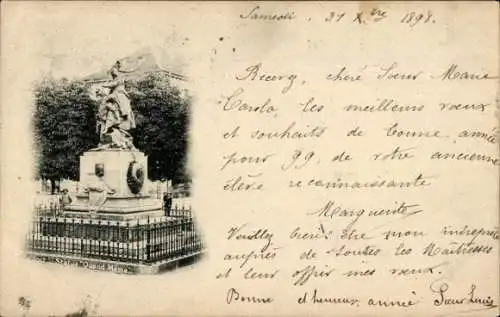 Samedi, 31 Xbre 1898.
Recevez, chère Sœur Marie
Carola, les meilleurs vœux
et souhaits de bonne année
pour 99, de votre ancienne
élève reconnaissante
Marguerite
Veuillez être mon interprète
auprès de toutes les Maîtresses
et leur offrir mes vœux.
Bonne et heureuse année Sœur
Statue "Quand Même"